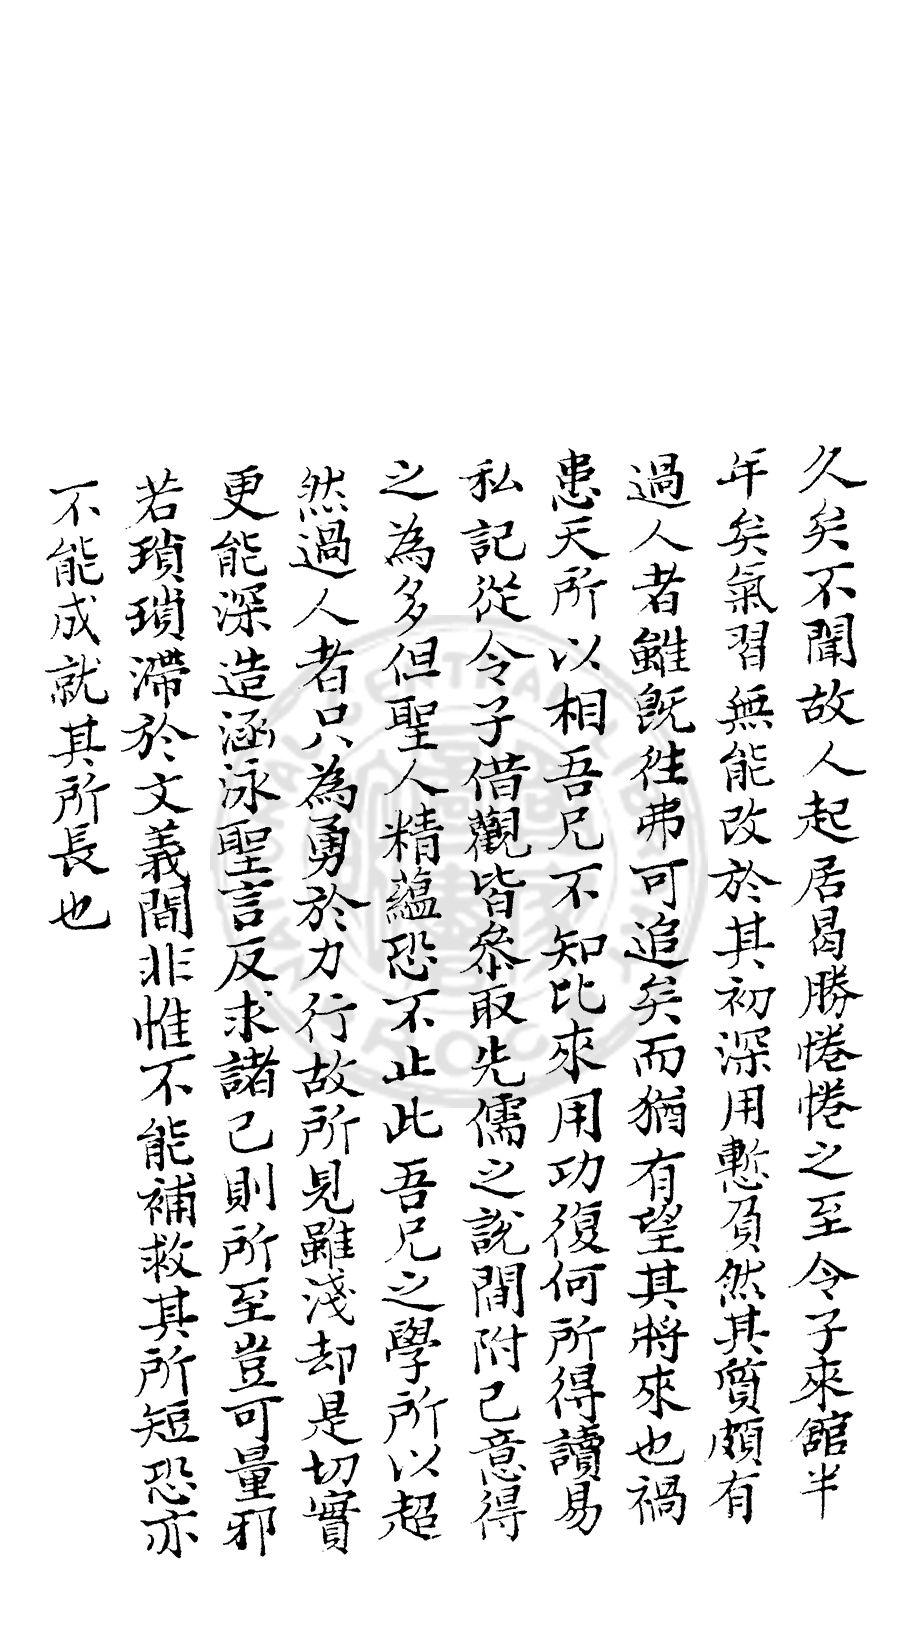 久矣不聞故人起居曷勝惓惓之至令子來館半
年矣氣習無能改於其初深用慙負然其質頗有
過人者雖既往弗可追矣而猶有望其將來也禍
患天所以相吾兄不知比來用功復何所得讀易
私記從令子借觀皆叅取先儒之說間附己意得
之為多但聖人精蘊恐不止此吾兄之學所以超
然過人者只為勇於力行故所見雖淺却是切實
更能深造涵泳聖言反求諸己則所至豈可量邪
若瑣瑣滯於文義間非惟不能補救其所短恐亦
不能成就其所長也